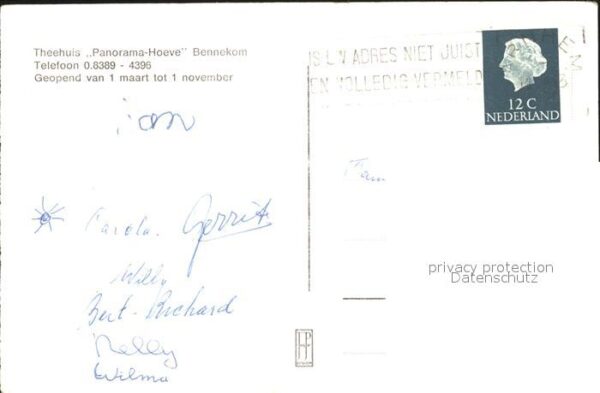 Theehuis „Panorama-Hoeve" Bennekom
Telefoon 0.8389 - 4396
Geopend van 1 maart tot 1 november
IS UW ADRES NIET JUIST
EN VOLLEDIG VERMELD
12 C
NEDERLAND
Jan
Fam
Carola. Gerrit
Willy
Bert - Richard
Nelly
Wilma
privacy protection
Datenschutz